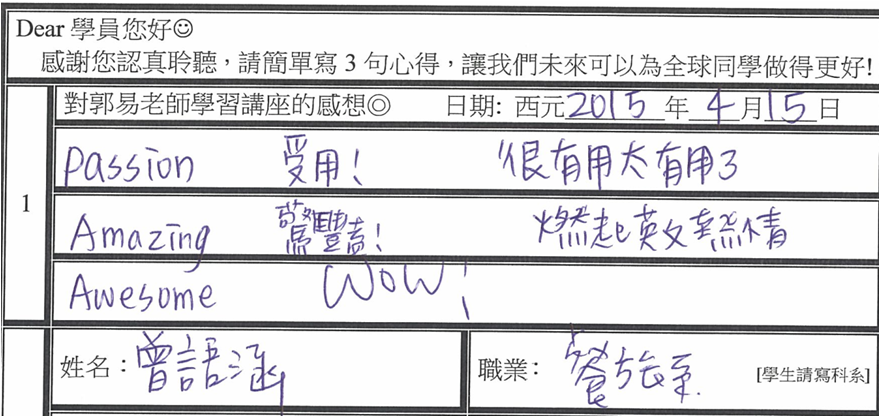 Dear 學員您好☺
感謝您認真聆聽，請簡單寫 3 句心得，讓我們未來可以為全球同學做得更好!
1 對郭易老師學習講座的感想◎ 日期: 西元 2015 年 4 月 15 日
Passion 受用! 很有用太有用了
Amazing 驚豔! 燃起英文熱情
Awesome Wow!
姓名：曾語涵 職業： 餐旅系 [學生請寫科系]